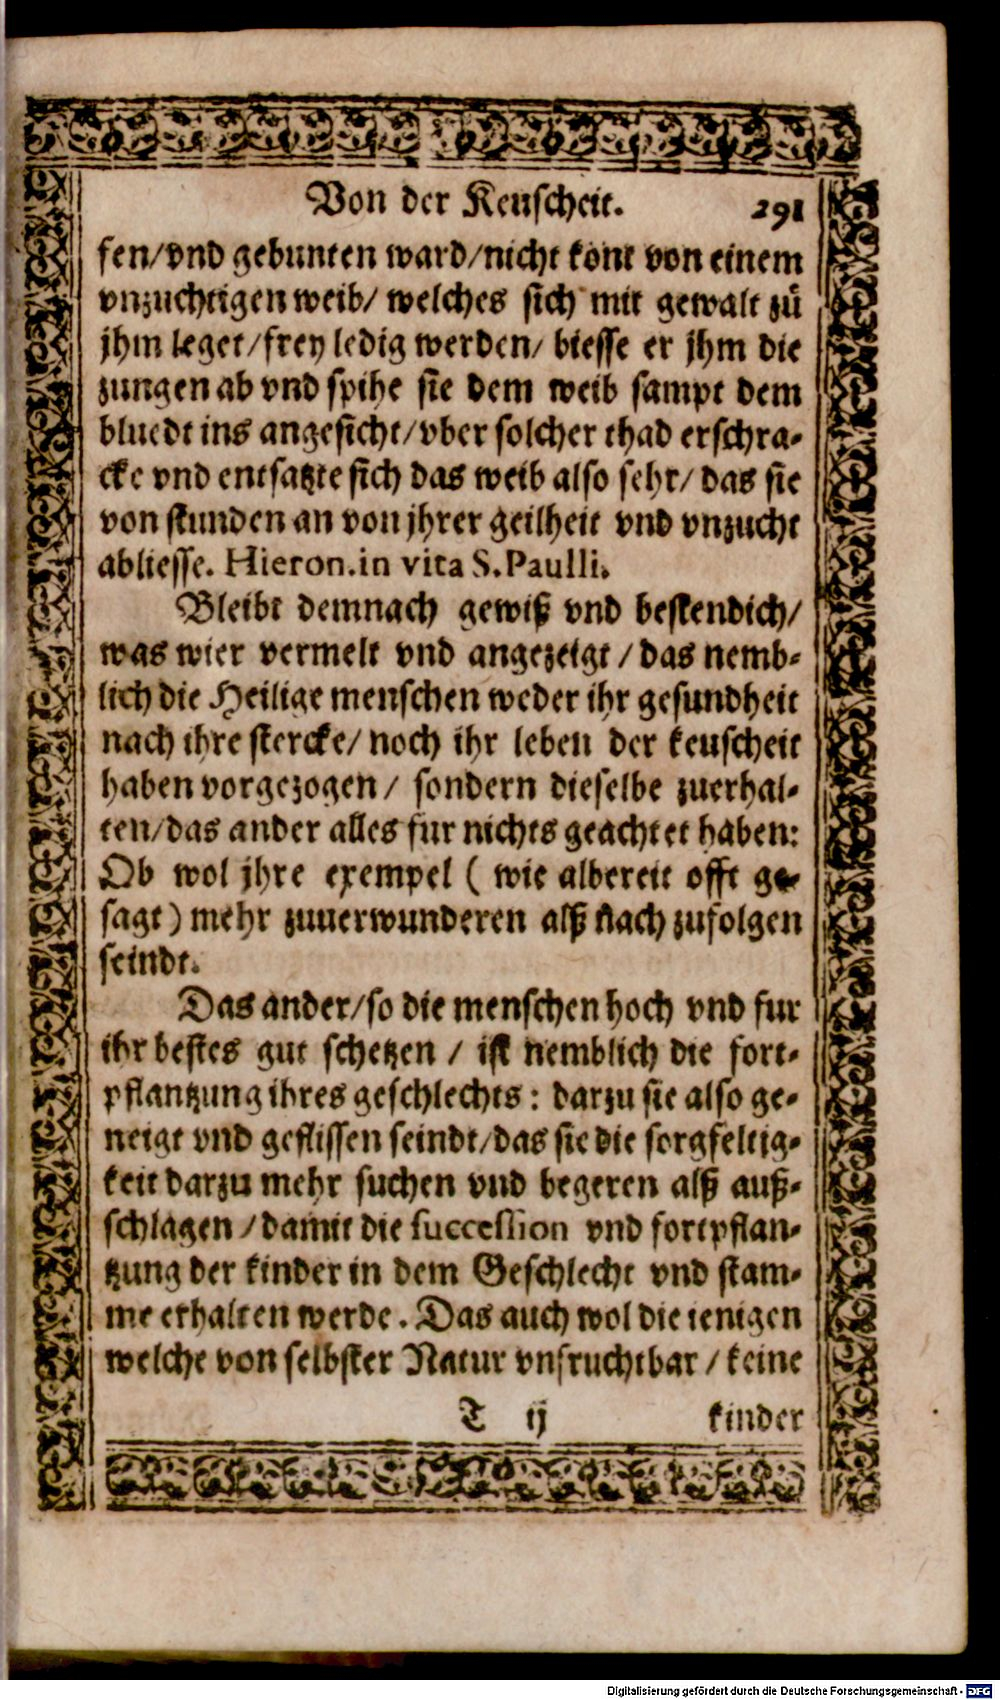 Von der Keuscheit. 291
fen/vnd gebunten ward/nicht kont von einem
vnzuchtigen weib/ welches sich mit gewalt zů
jhm leget/frey ledig werden/ biesse er jhm die
zungen ab vnd spihe sie dem weib sampt dem
bluedt ins angesicht/vber solcher thad erschra-
cke vnd entsatzte sich das weib also sehr/ das sie
von stunden an von jhrer geilheit vnd vnzucht
abliesse. Hieron. in vita S. Paulli.
Bleibt demnach gewiß vnd bestendich/
was wier vermelt vnd angezeigt / das nemb-
lich die Heilige menschen weder ihr gesundheit
nach ihre stercke/ noch ihr leben der keuscheit
haben vorgezogen / sondern dieselbe zuerhal-
ten/das ander alles fur nichts geachtet haben:
Ob wol jhre exempel ( wie albereit offt ge-
sagt ) mehr zuuerwunderen alß nach zufolgen
seindt.
Das ander/so die menschen hoch vnd fur
ihr bestes gut schetzen / ist nemblich die fort-
pflantzung ihres geschlechts : darzu sie also ge-
neigt vnd geflissen seindt/das sie die sorgfeltig-
keit darzu mehr suchen vnd begeren alß auß-
schlagen / damit die succession vnd fortpflan-
tzung der kinder in dem Geschlecht vnd stam-
me erhalten werde. Das auch wol die ienigen
welche von selbster Natur vnfruchtbar / keine
T ij kinder
Digitalisierung gefördert durch die Deutsche Forschungsgemeinschaft - DFG